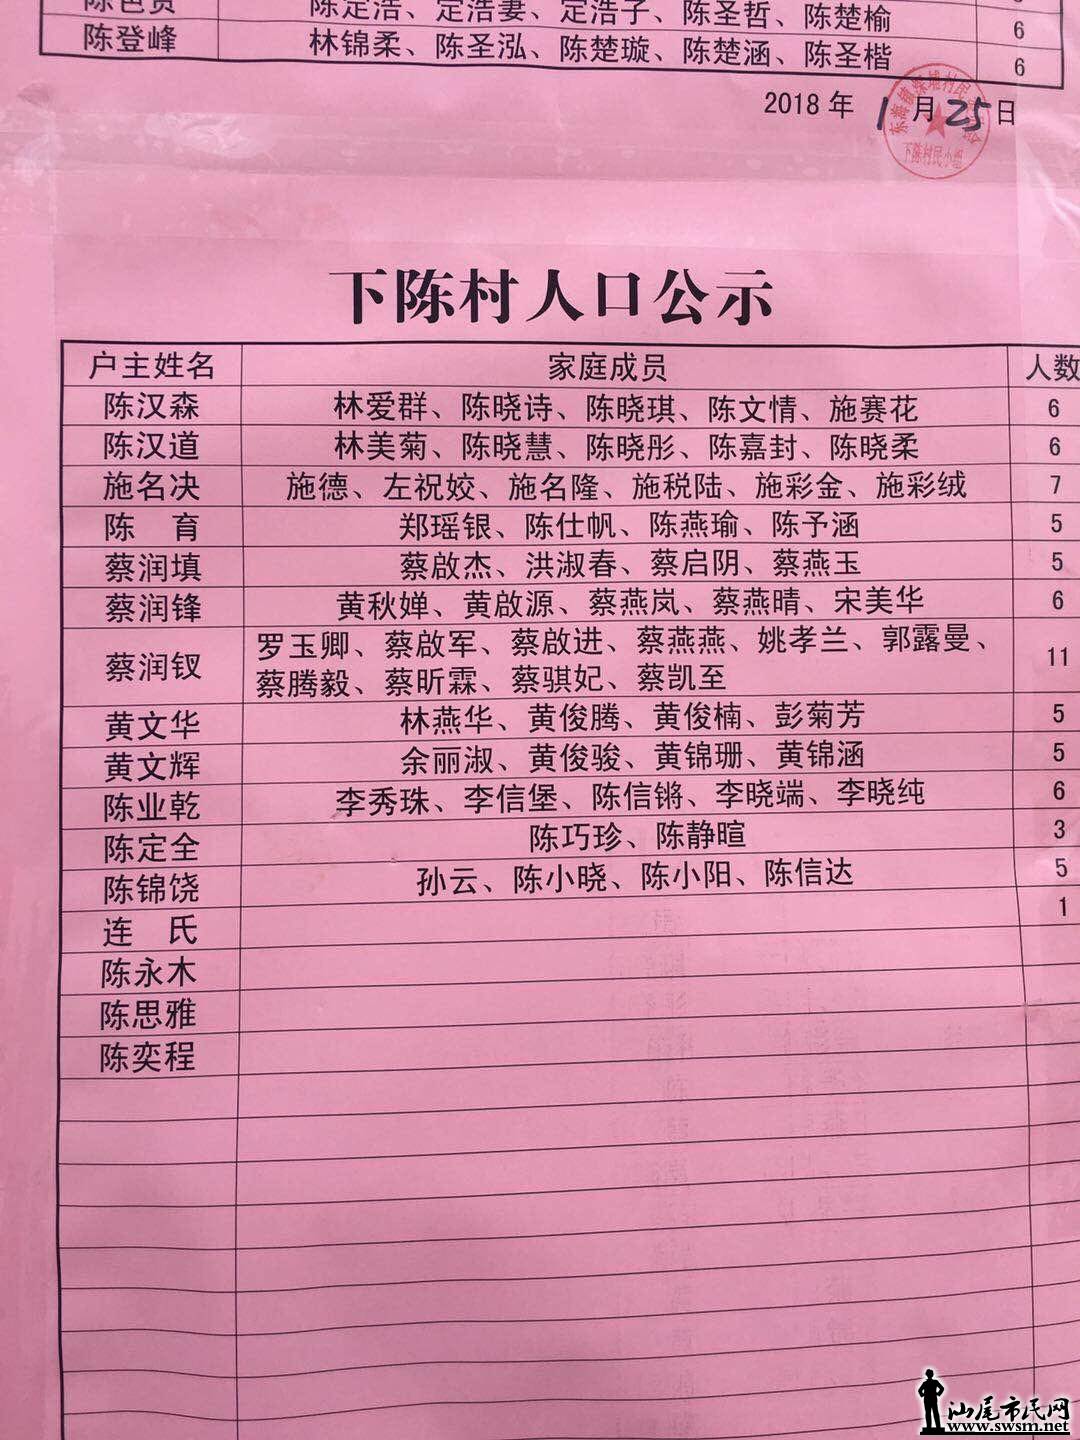 陈定浩、定浩妻、定浩子、陈圣哲、陈楚榆 6
陈登峰 林锦柔、陈圣泓、陈楚璇、陈楚涵、陈圣楷 6
2018年1月25日
下陈村民小组
下陈村人口公示
户主姓名 家庭成员 人数
陈汉森 林爱群、陈晓诗、陈晓琪、陈文情、施赛花 6
陈汉道 林美菊、陈晓慧、陈晓彤、陈嘉封、陈晓柔 6
施名决 施德、左祝姣、施名隆、施税陆、施彩金、施彩绒 7
陈 育 郑瑶银、陈仕帆、陈燕瑜、陈予涵 5
蔡润填 蔡啟杰、洪淑春、蔡启阴、蔡燕玉 5
蔡润锋 黄秋婵、黄啟源、蔡燕岚、蔡燕晴、宋美华 6
蔡润钗 罗玉卿、蔡啟军、蔡啟进、蔡燕燕、姚孝兰、郭露曼、 11
蔡腾毅、蔡昕霖、蔡骐妃、蔡凯至
黄文华 林燕华、黄俊腾、黄俊楠、彭菊芳 5
黄文辉 余丽淑、黄俊骏、黄锦珊、黄锦涵 5
陈业乾 李秀珠、李信堡、陈信锵、李晓端、李晓纯 6
陈定全 陈巧珍、陈静暄 3
陈锦饶 孙云、陈小晓、陈小阳、陈信达 5
连 氏 1
陈永木
陈思雅
陈奕程
汕尾市民网
www.swsm.net